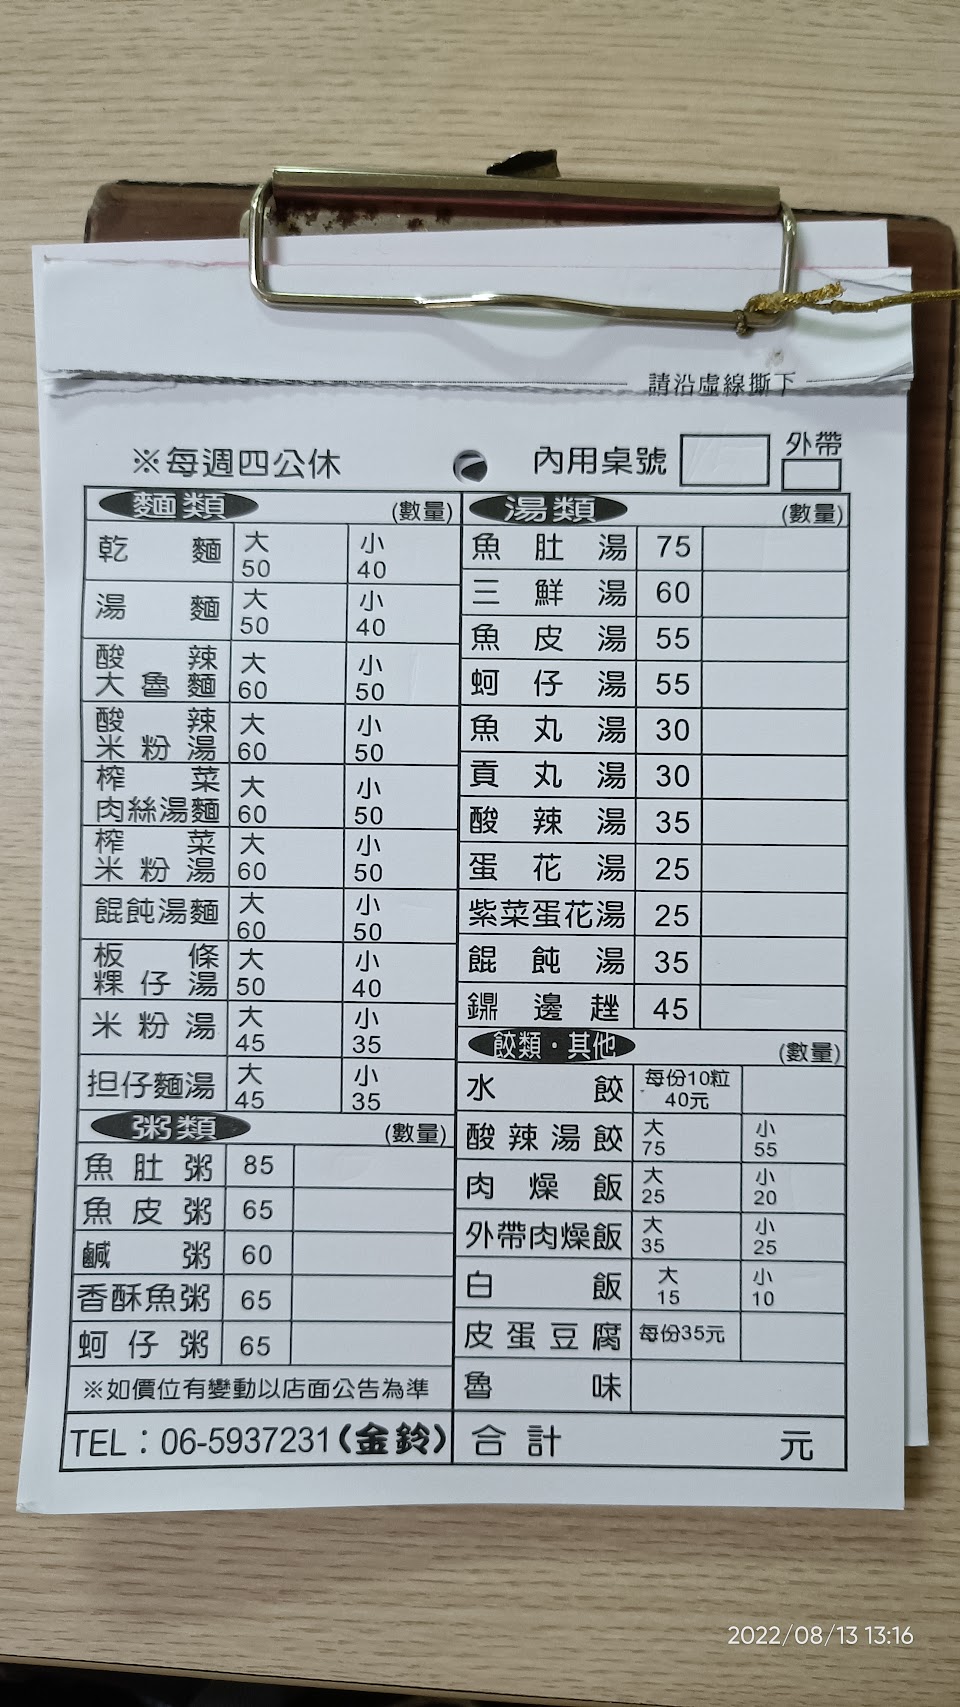 請沿虛線撕下
※每週四公休
內用桌號
外帶
麵類 (數量)
乾麵 大 50 小 40
湯麵 大 50 小 40
酸辣大魯麵 大 60 小 50
酸辣米粉湯 大 60 小 50
榨菜肉絲湯麵 大 60 小 50
榨菜米粉湯 大 60 小 50
餛飩湯麵 大 60 小 50
板條粿仔湯 大 50 小 40
米粉湯 大 45 小 35
担仔麵湯 大 45 小 35
粥類 (數量)
魚肚粥 85
魚皮粥 65
鹹粥 60
香酥魚粥 65
蚵仔粥 65
※如價位有變動以店面公告為準
TEL：06-5937231(金鈴)
湯類 (數量)
魚肚湯 75
三鮮湯 60
魚皮湯 55
蚵仔湯 55
魚丸湯 30
貢丸湯 30
酸辣湯 35
蛋花湯 25
紫菜蛋花湯 25
餛飩湯 35
鐤邊趖 45
餃類·其他 (數量)
水餃 每份10粒 40元
酸辣湯餃 大 75 小 55
肉燥飯 大 25 小 20
外帶肉燥飯 大 35 小 25
白飯 大 15 小 10
皮蛋豆腐 每份35元
魯味
合計 元
2022/08/13 13:16